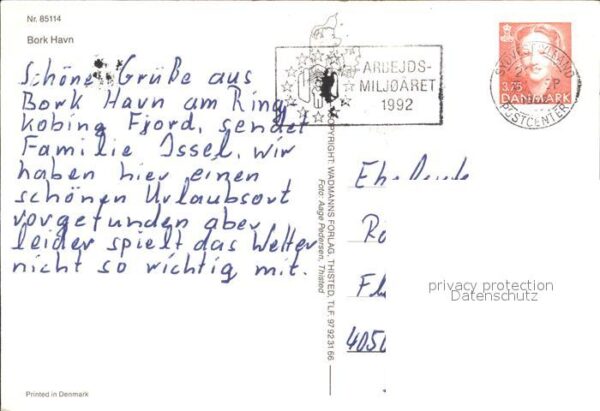 Nr. 85114
Bork Havn
Schöne Grüße aus
Bork Havn am Ring-
kobing Fjord, sendet
Familie Issel, wir
haben hier einen
schönen Urlaubsort
vorgefunden aber
leider spielt das Wetter
nicht so richtig mit.
Printed in Denmark
COPYRIGHT: WADMANNS FORLAG, THISTED, TLF. 97 92 31 66
Foto: Aage Pedersen, Thisted
ARBEJDS-
MILJØÅRET
1992
3.75
DANMARK
POSTCENTER
4050
privacy protection
Datenschutz